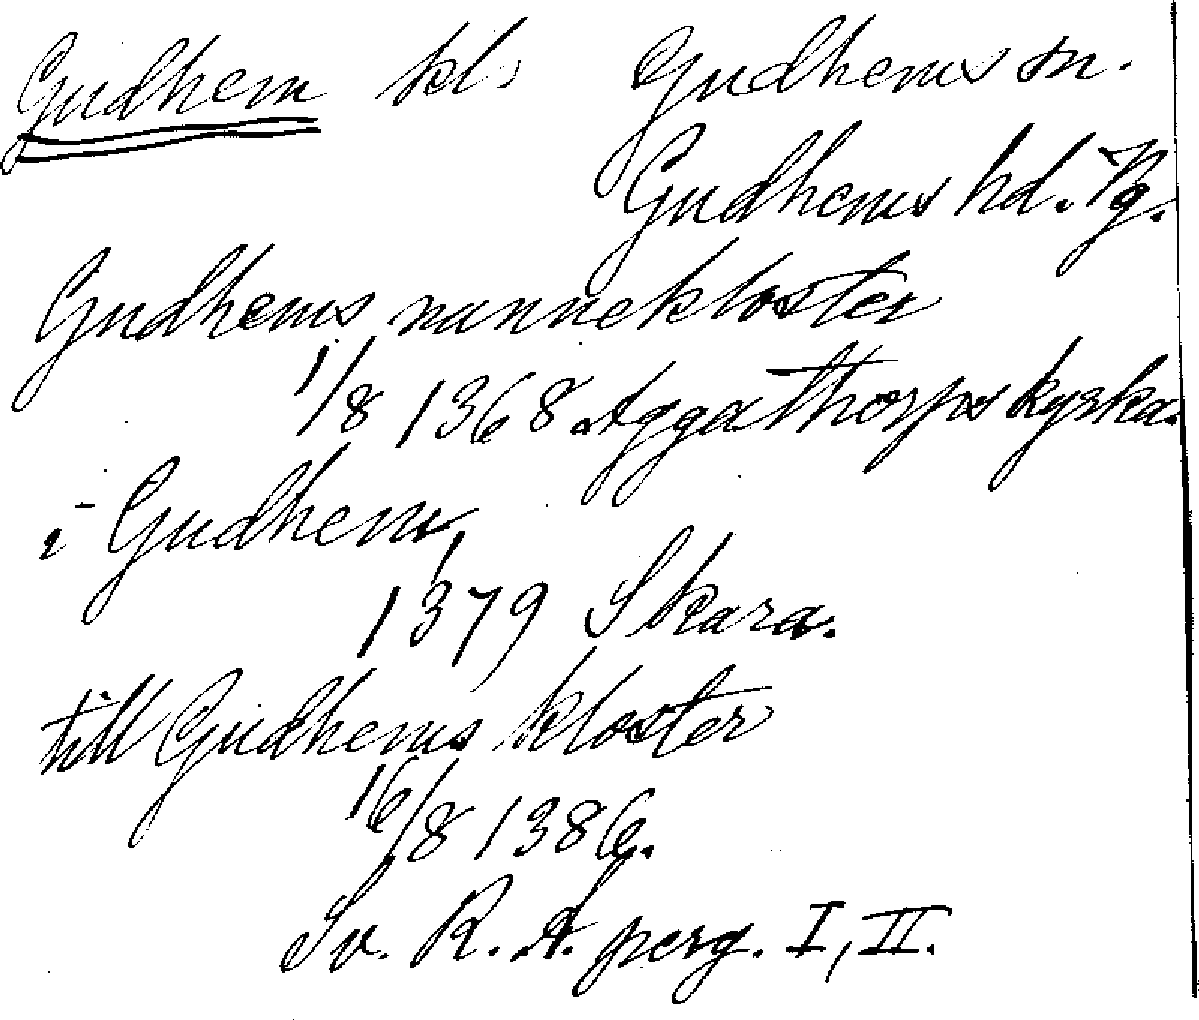 Gudhem kl. Gudhems sn.
Gudhems hd. Vg.
Gudhems nunnekloster
1/8 1368 Aggathorps kyrka.
i Gudhem,
1379 Skara.
till Gudhems kloster
16/8 1386.
Sv. R. A. perg. I, II.